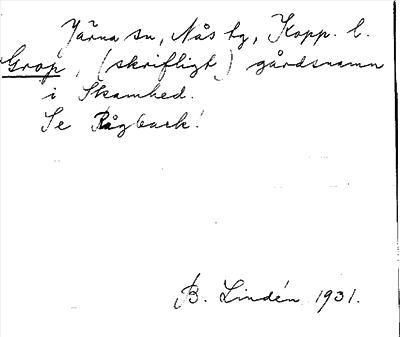 Järna sn, Nås tg, Kopp. l.
Grop, (skrifligt) gårdsnamn
i Skamhed.
Se Rågbark!
B. Lindén 1931.